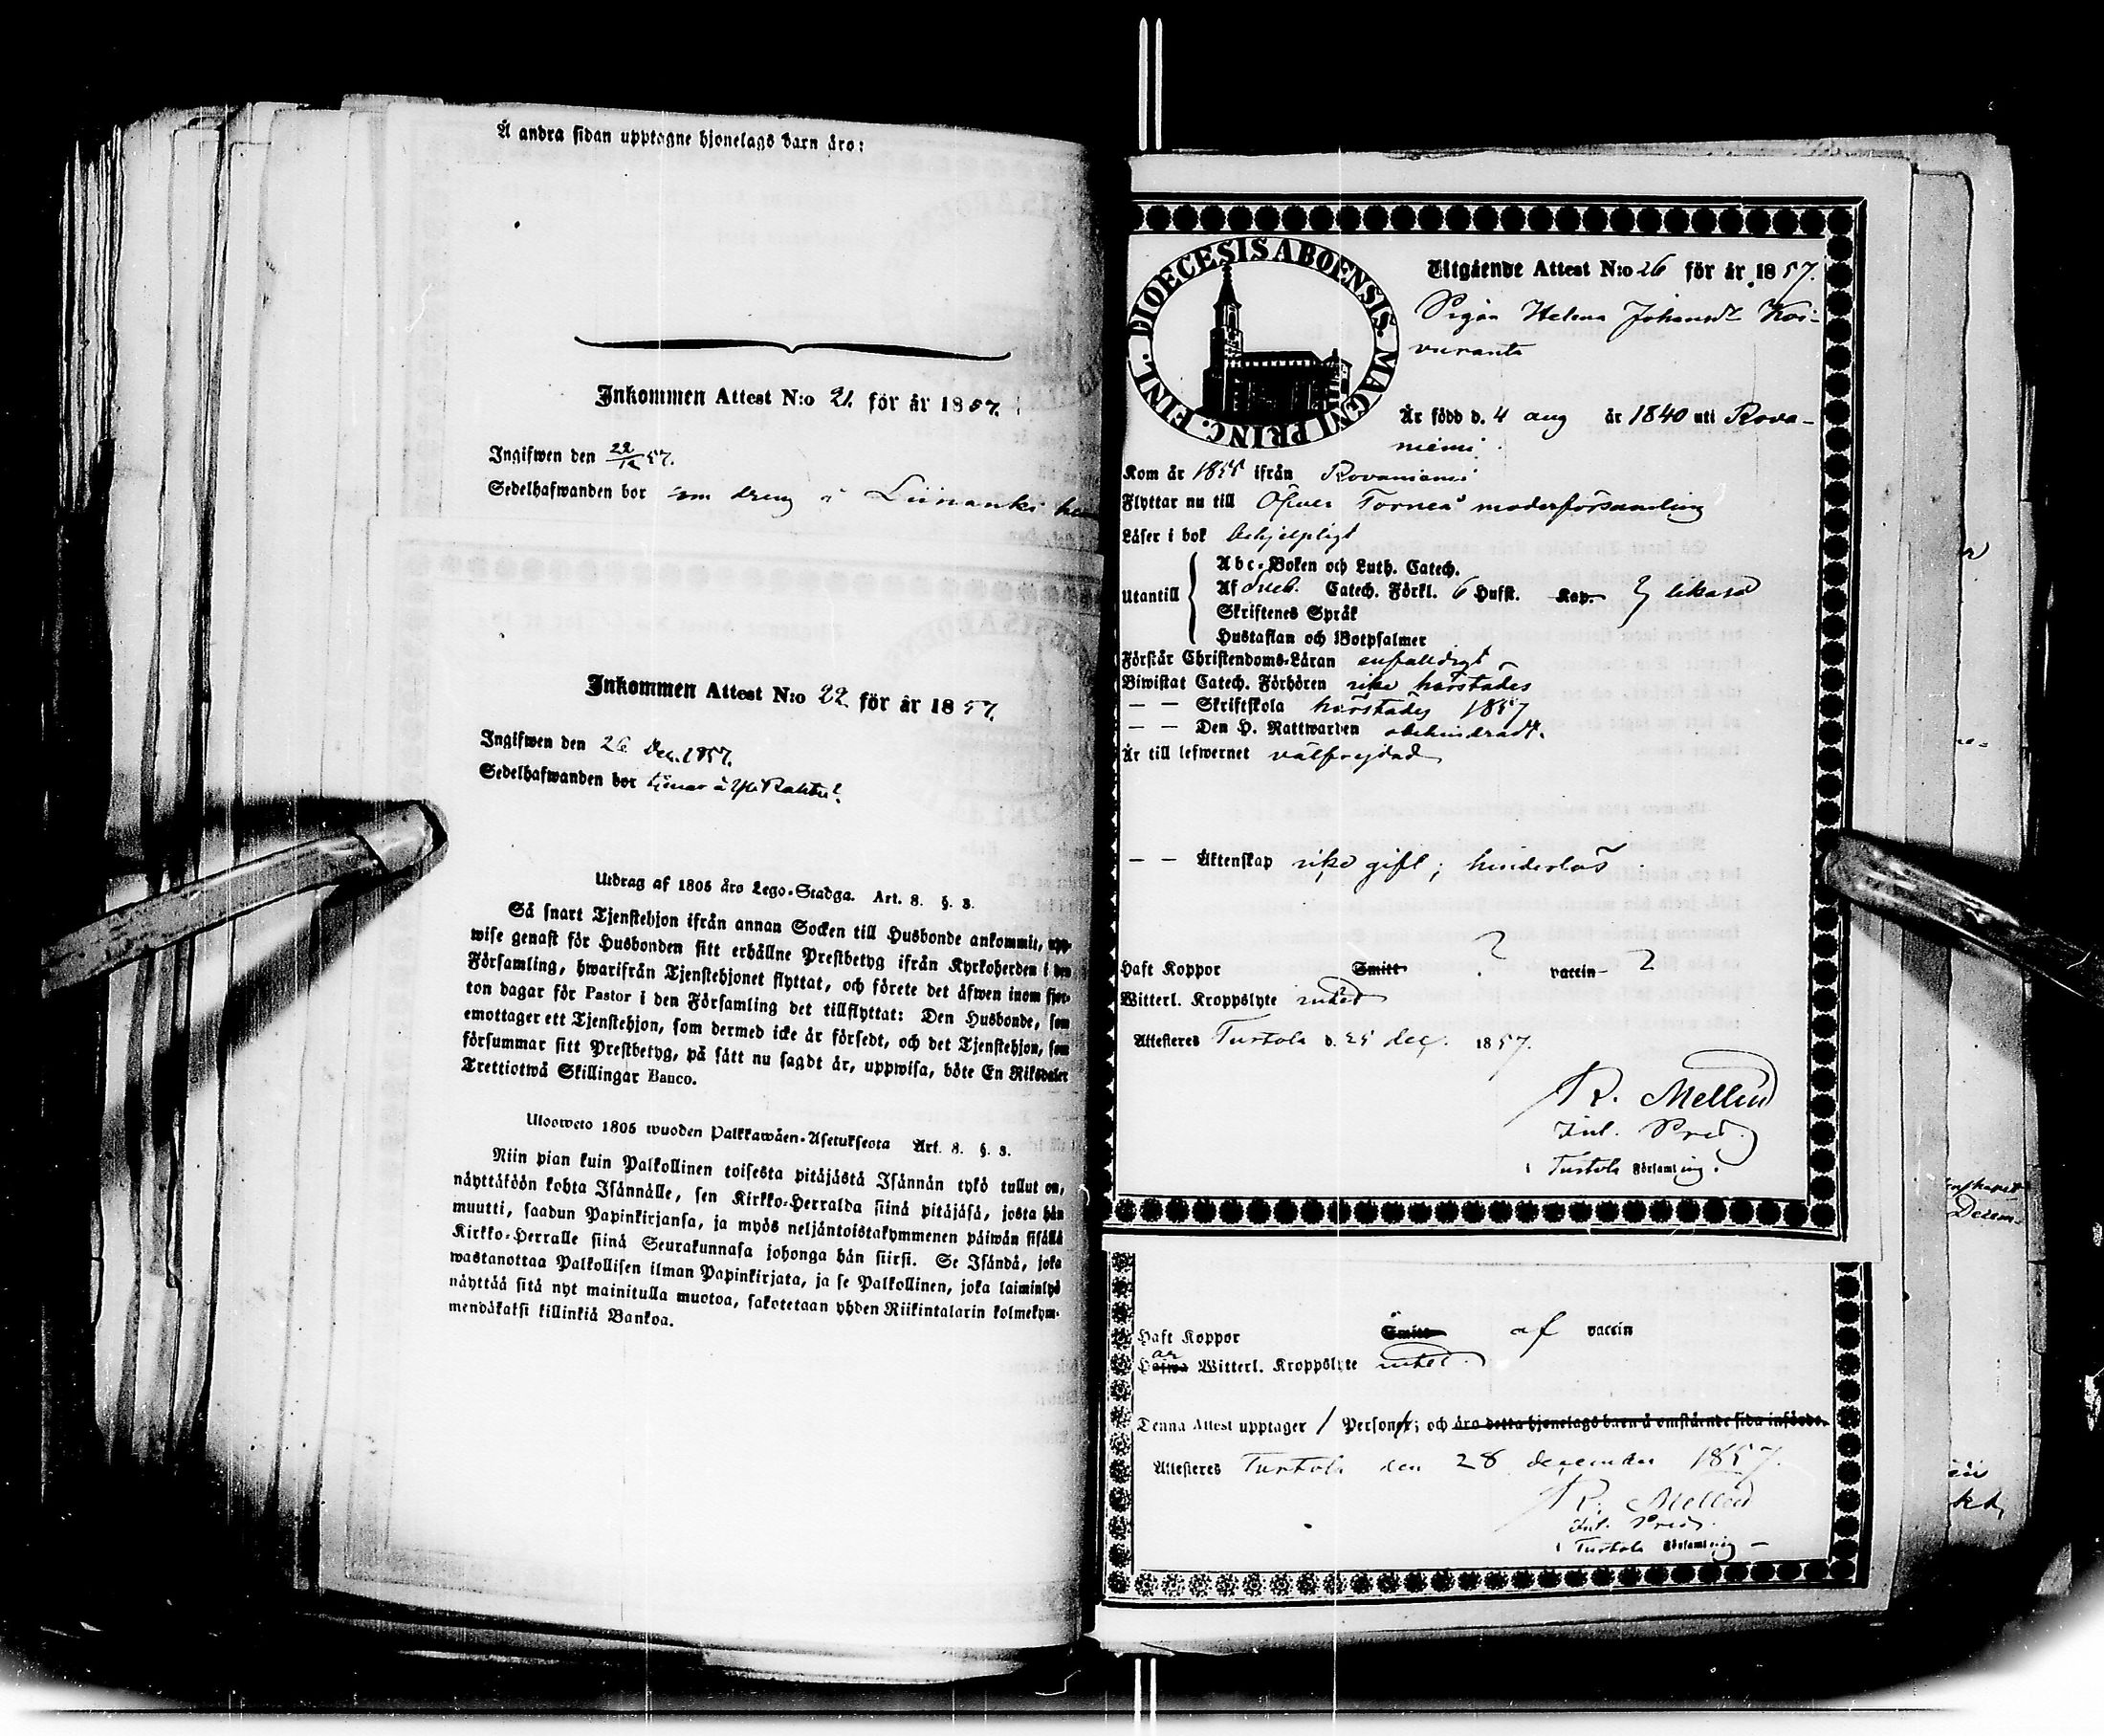 Å andra sidan upptagne hjonelags barn äro:
Inkommen Attest N:o 21. för år 1857.
Ingifwen den 22/12 57.
Sedelhafwanden bor som dreng å Liinanki
Inkommen Attest N:o 22 för år 1857.
Ingifwen den 26 Dec. 1857.
Sedelhafwanden bor tjenar å Yli
Utdrag af 1805 års Lego-Stadga. Art. 8. §. 3.
Så snart Tjenstehjon ifrån annan Socken till Husbonde ankommit, upp-
wise genast för Husbonden sitt erhållne Prestbetyg ifrån Kyrkoherden i den
Församling, hwarifrån Tjenstehjonet flyttat, och förete det äfwen inom fjor-
ton dagar för Pastor i den Församling det tillflyttat: Den Husbonde, som
emottager ett Tjenstehjon, som dermed icke är försedt, och det Tjenstehjon, som
försummar sitt Prestbetyg, på sätt nu sagdt är, uppwisa, böte En Riksdaler
Trettiotwå Skillingar Banco.
Ulosweto 1805 wuoden Palkkawäen-Asetuksesta Art. 8. §. 3.
Niin pian kuin Palkollinen toisesta pitäjästä Isännän tykö tullut on,
näyttäköön kohta Isännälle, sen Kirkko-Herralda siinä pitäjäsä, josta hän
muutti, saadun Papinkirjansa, ja myös neljäntoistakymmenen päiwän sisällä
Kirkko-Herralle siinä Seurakunnasa johonga hän siirsi. Se Isändä, joka
wastanottaa Palkollisen ilman Papinkirjata, ja se Palkollinen, joka laiminlyö
näyttää sitä nyt mainitulla muotoa, sakotetaan yhden Riikintalarin kolmekym-
mendäkaksi killinkiä Bankoa.
DIOECESIS ABOENSIS. MAGNI PRINC. FINL.
Utgående Attest N:o 26 för år 1857.
Pigan Helena Johansdr Koi-
vuranta
Är född d. 4 aug år 1840 uti Rova-
niemi
Kom år 1855 ifrån Rovaniemi
Flyttar nu till Öfver Torneå moderförsamling
Läser i bok behjelpligt
Utantill
Abc-Boken och Luth. Catech.
Af Catech. Förkl. 6 Hufst. Kap. likaså
Skriftenes Språk
Hustaflan och Botpsalmer
Förstår Christendoms-Läran enfaldigt
Biwistat Catech. Förhören icke härstädes
— — Skriftskola härstädes 1857
— — Den H. Nattwarden obehindradt.
Är till lefwernet välfrejdad
— — Äktenskap icke gift; hinderlös
Haft Koppor Smitt ? vaccin ?
Witterl. Kroppslyte intet
Attesteras Turtola d. 25 dec. 1857.
R. Mellin
Int. Pred.
i Turtola Församling.
Haft Koppor Smitt af vaccin
Hafwa ar Witterl. Kroppslyte intet.
Denna Attest upptager 1 Person; och äro detta hjonelags barn å omstående sida införde.
Attesteras Turtola den 28 december 1857.
R. Mellin
Int. Pred.
i Turtola Församling